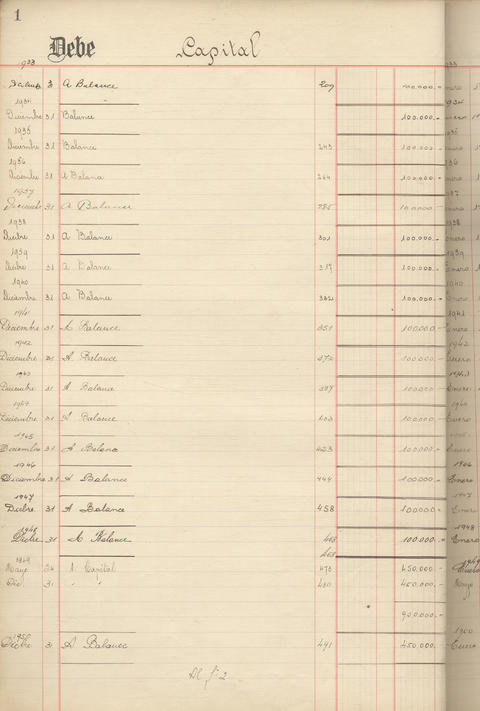 1
Debe Capital
1933
3 A Balance 209 100.000.-
1934
Diciembre 31 Balance 100.000.-
1935
Dicembre 31 Balance 243 100.000.-
1936
Dicembre 31 A Balance 264 100.000.-
1937
Diciembre 31 A Balance 285 100.000.-
1938
Dicbre 31 A Balance 301 100.000.-
1939
Dicbre 31 A Balance 317 100.000.-
1940
Diciembre 31 A Balance 332 100.000.-
1941
Diciembre 31 A Balance 351 100.000.-
1942
Diciembre 31 A Balance 372 100.000.-
1943
Diciembre 31 A Balance 387 100.000.-
1944
Diciembre 31 A Balance 403 100.000.-
1945
Diciembre 31 A Balance 423 100.000.-
1946
Diciembre 31 A Balance 444 100.000.-
1947
Dicbre 31 A Balance 458 100.000.-
1948
Dicbre 31 A Balance 468 100.000.-
468
1949
Mayo A Capital 473 450.000.-
Dic. 31 " " 480 450.000.-
900.000.-
1950
Dicbre 31 A Balance 491 450.000.-
Al fº 2
1934
Enero
1938
Enero
1939
Enero
1940
Enero
1941
Enero
1942
Enero
1943
Enero
Enero
1946
Enero
1947
Enero
1948
Enero
1949
Mayo
1950
Enero